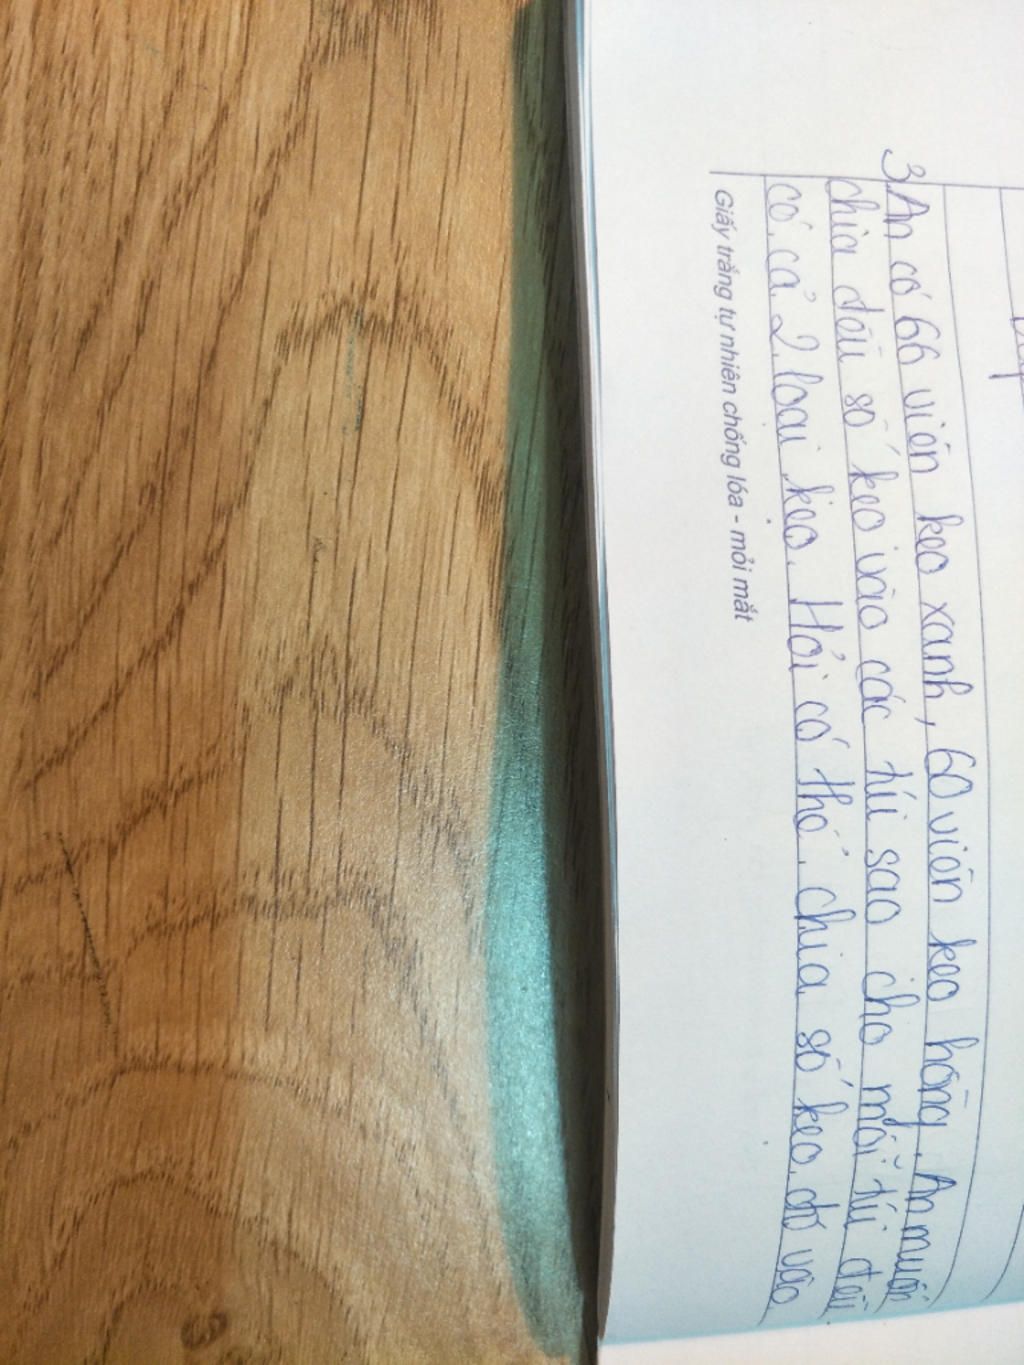 3. An có 66 viên kẹo xanh, 60 viên kẹo hồng. An muốn
chia đều số kẹo vào các túi sao cho mỗi túi đều
có cả 2 loại kẹo. Hỏi có thể chia số kẹo đó vào
Giấy trắng tự nhiên chống lóa - mỏi mắt